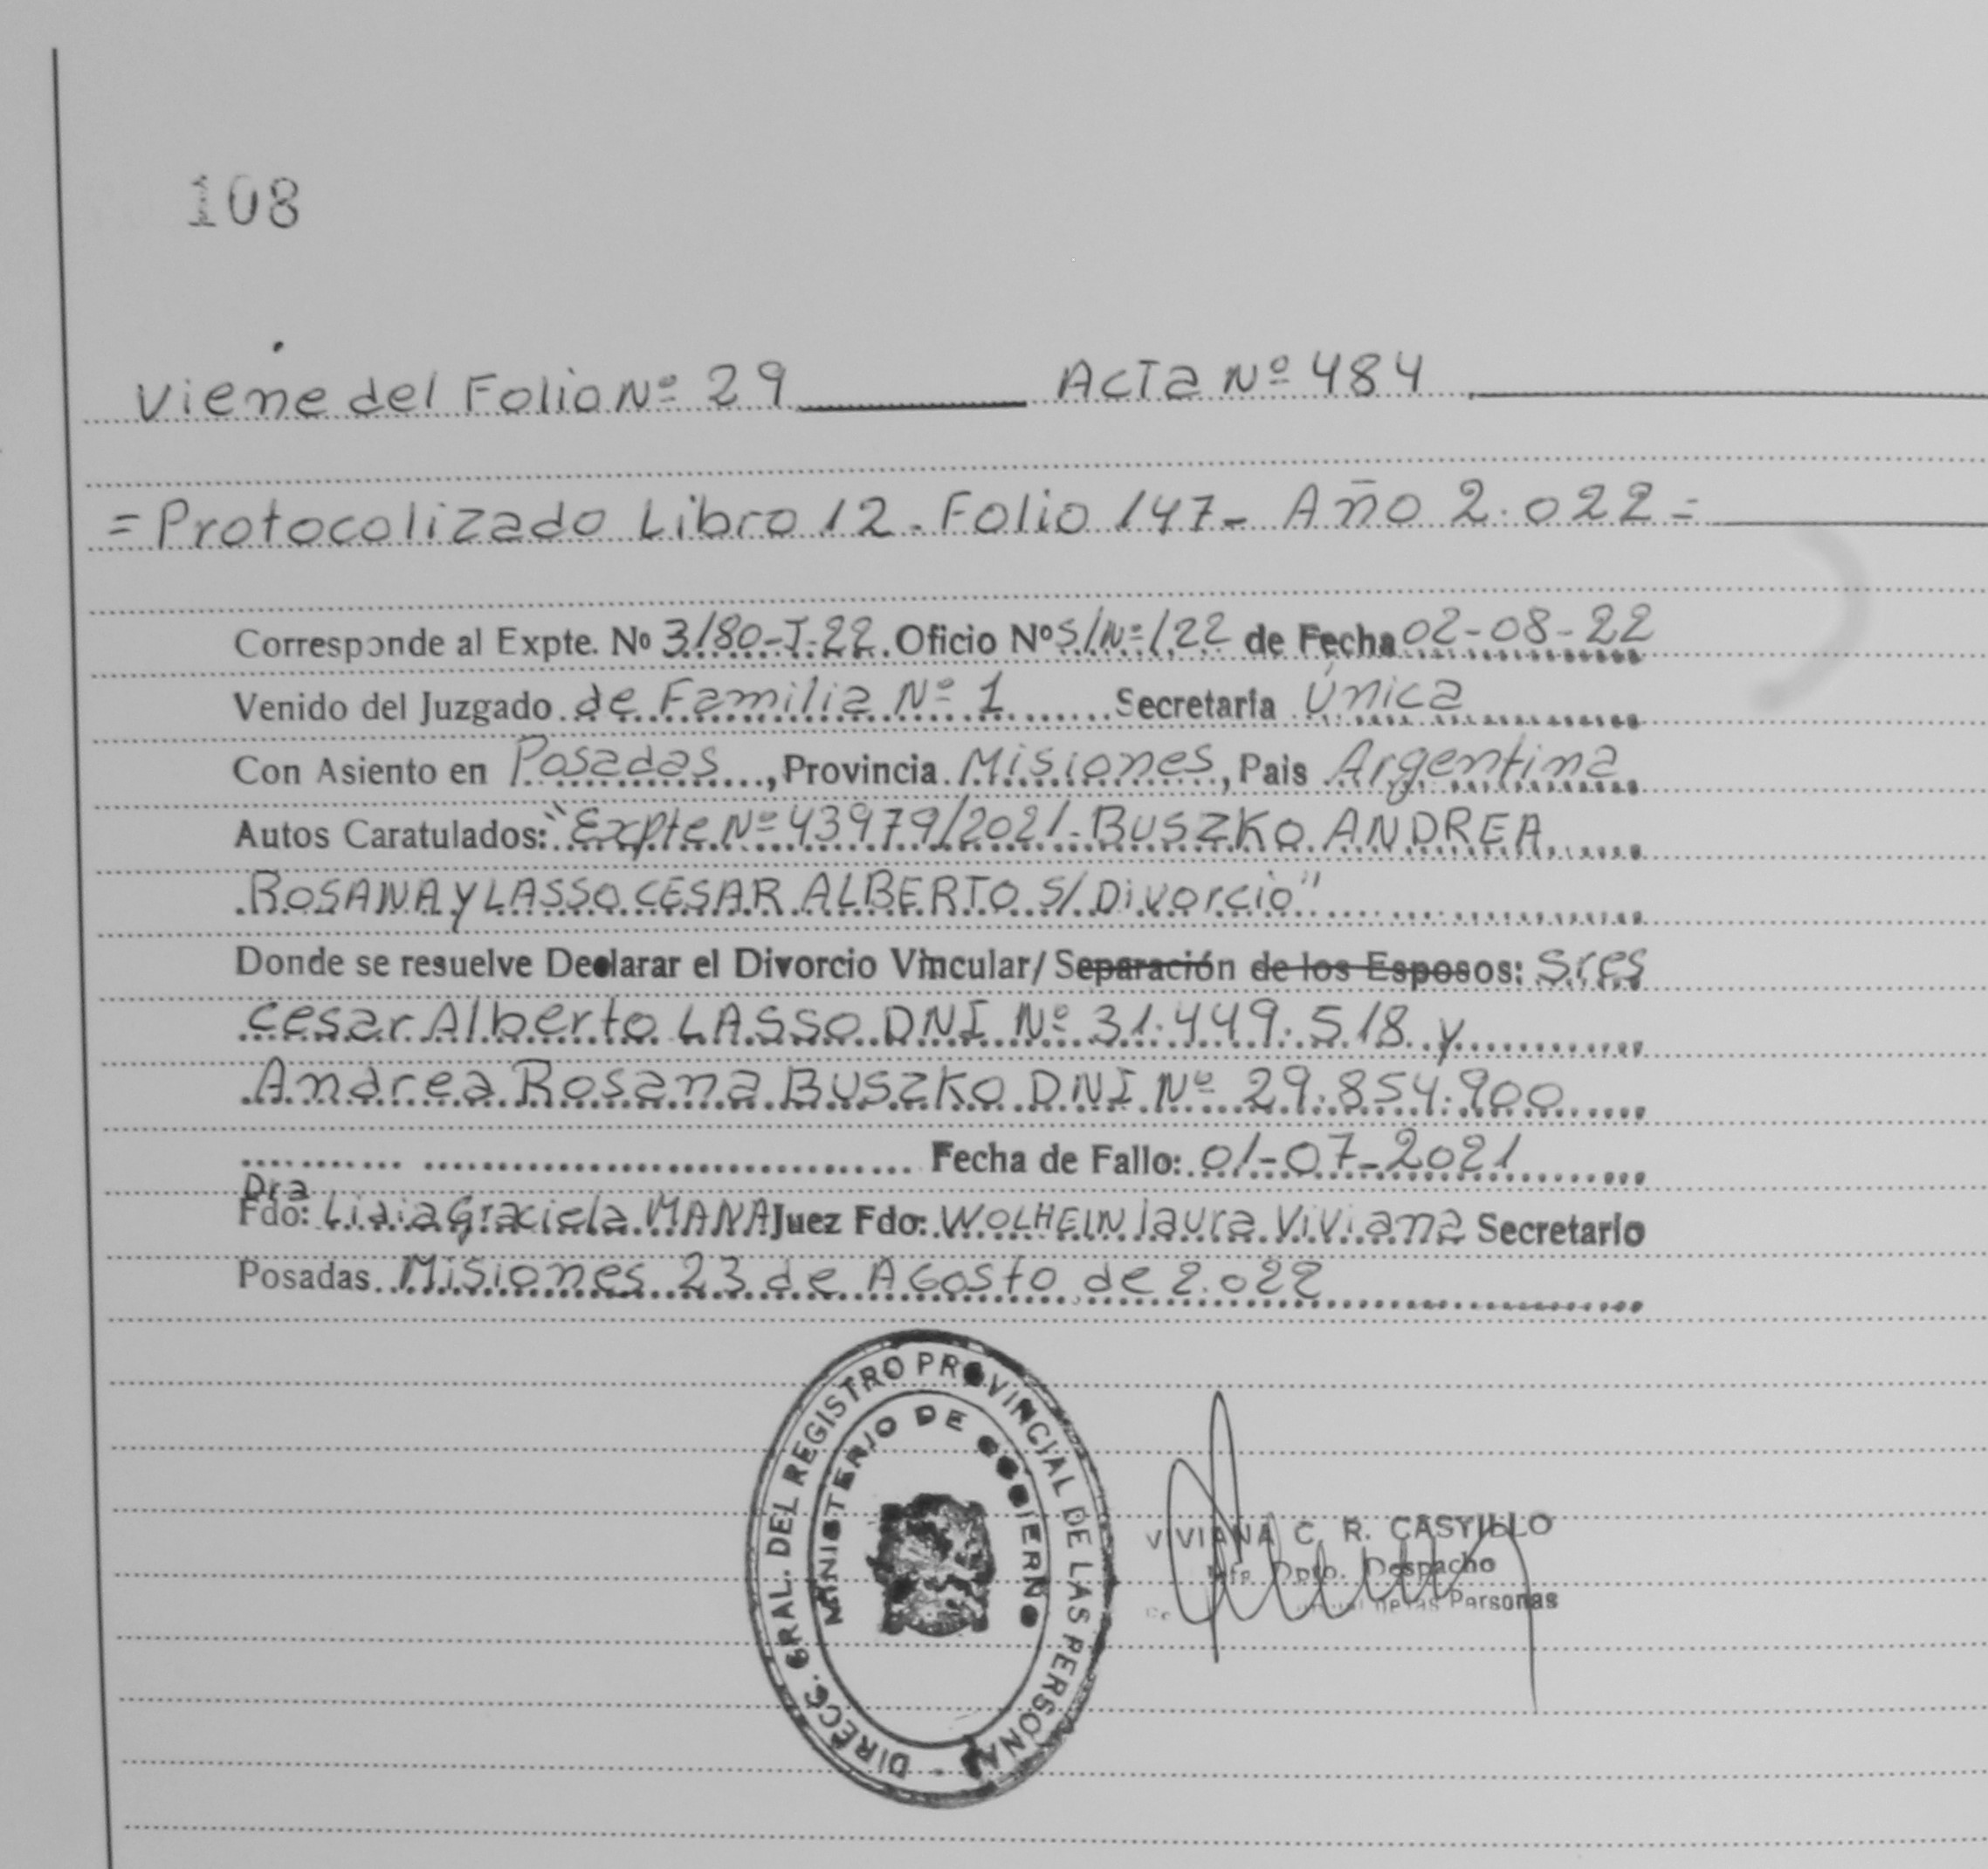 108
Viene del Folio Nº 29 Acta Nº 484
= Protocolizado Libro 12. Folio 147- Año 2.022 =
Corresponde al Expte. Nº 3180-J-22. Oficio Nº S/Nº/22 de Fecha 02-08-22
Venido del Juzgado de Familia Nº 1 Secretaría Única
Con Asiento en Posadas, Provincia Misiones, Pais Argentina
Autos Caratulados: "Expte Nº 43979/2021-BUSZKO ANDREA
ROSANA Y LASSO CESAR ALBERTO S/ Divorcio"
Donde se resuelve Declarar el Divorcio Vincular/ Separación de los Esposos: Sres
Cesar Alberto LASSO DNI Nº 31.449.518 y
Andrea Rosana BUSZKO DNI Nº 29.854.900
Fecha de Fallo: 01-07-2021
Dra
Fdo: Lidia Graciela MANA Juez Fdo: WOLHEIN laura Viviana Secretario
Posadas Misiones 23 de Agosto de 2.022
DIRECC. GRAL. DEL REGISTRO PROVINCIAL DE LAS PERSONAS -
MINISTERIO DE GOBIERNO
VIVIANA C. R. CASTILLO
Jefe Dpto. Despacho
de las Personas